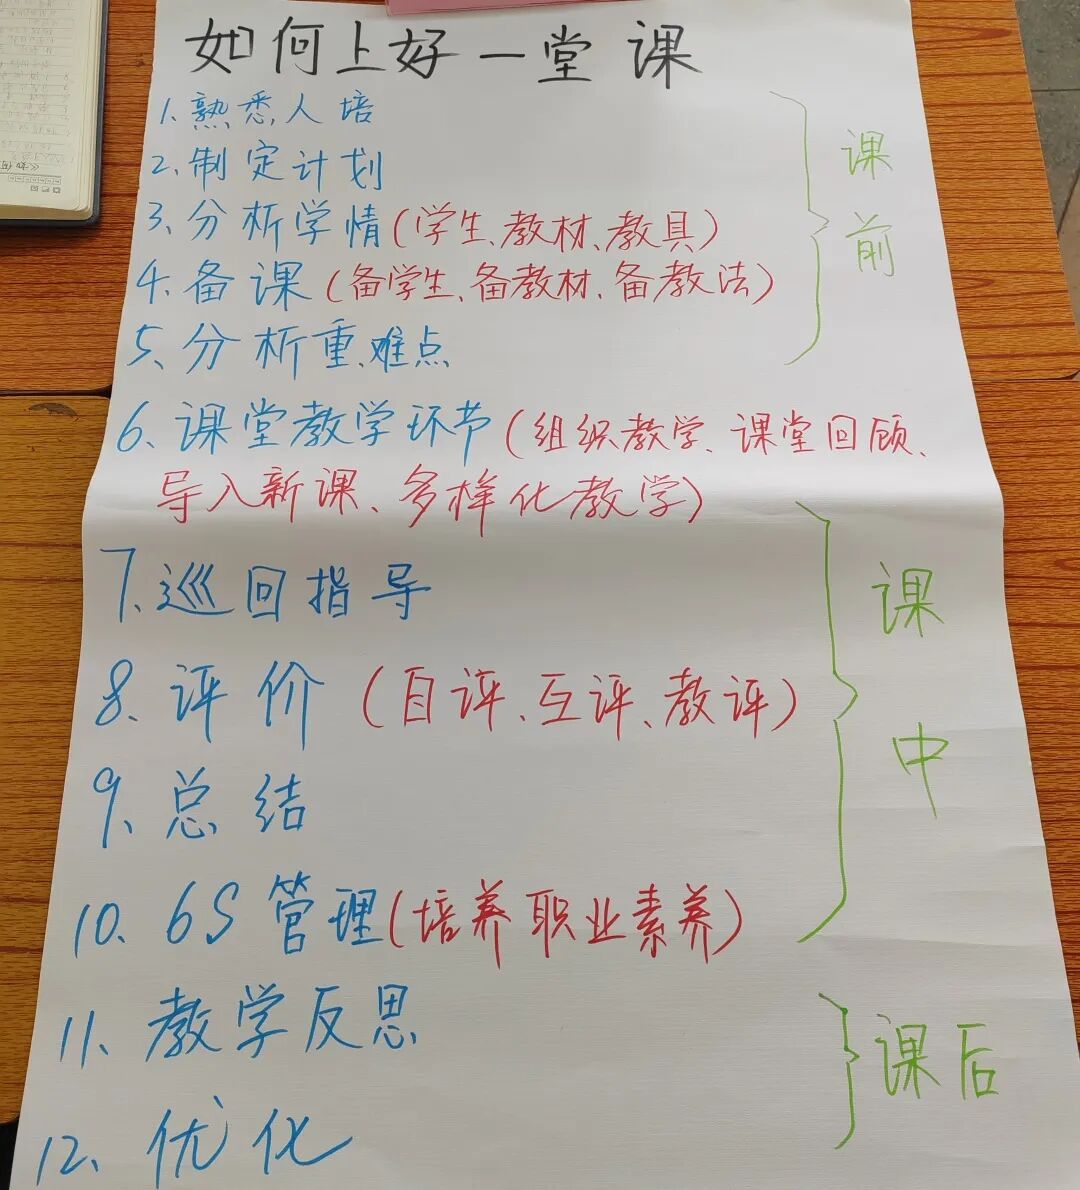 如何上好一堂课
1.熟悉人培
2.制定计划
3、分析学情(学生、教材、教具)
4.备课(备学生、备教材、备教法)
5、分析重、难点
课前
6、课堂教学环节(组织教学、课堂回顾、
导入新课、多样化教学)
7.巡回指导
8.评价(自评、互评、教评)
9、总结
10.6S管理(培养职业素养)
课中
11、教学反思
12、优化
课后